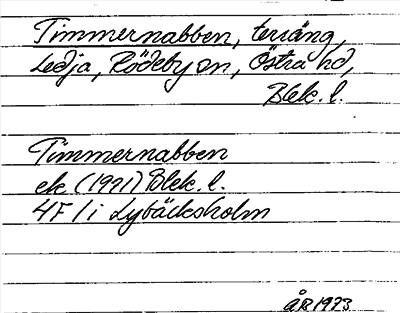 Timmernabben, terräng,
Ledja, Rödeby sn, Östra hd,
Blek. l.
Timmernabben
ek (1971) Blek. l.
4F 1 i Lybäcksholm
ÅB 1973